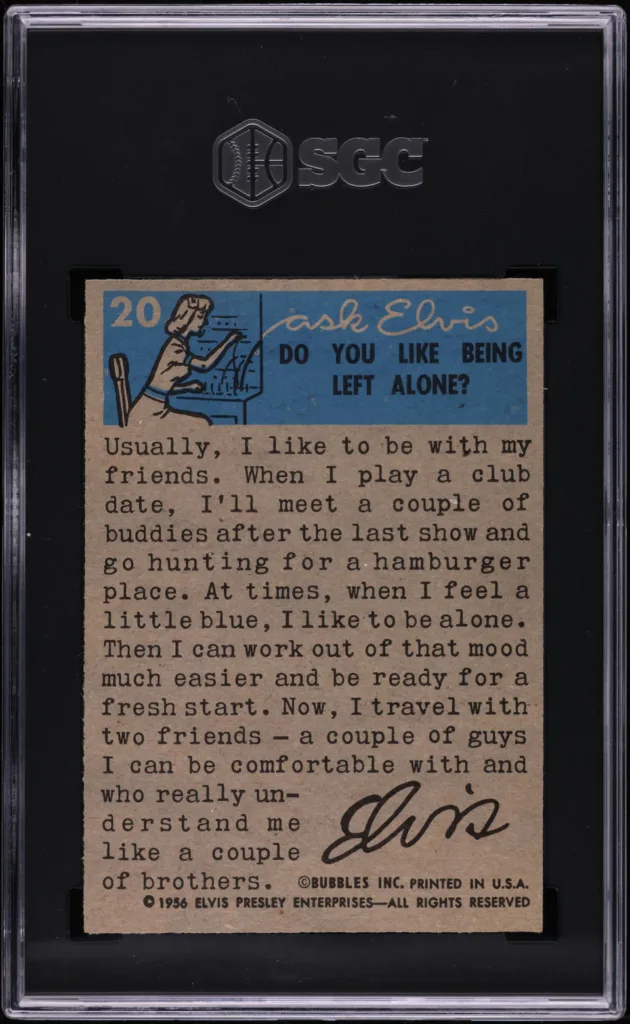 SGC
20
ask Elvis
DO YOU LIKE BEING
LEFT ALONE?
Usually, I like to be with my
friends. When I play a club
date, I'll meet a couple of
buddies after the last show and
go hunting for a hamburger
place. At times, when I feel a
little blue, I like to be alone.
Then I can work out of that mood
much easier and be ready for a
fresh start. Now, I travel with
two friends — a couple of guys
I can be comfortable with and
who really un-
derstand me
like a couple
of brothers.
Elvis
©BUBBLES INC. PRINTED IN U.S.A.
© 1956 ELVIS PRESLEY ENTERPRISES—ALL RIGHTS RESERVED